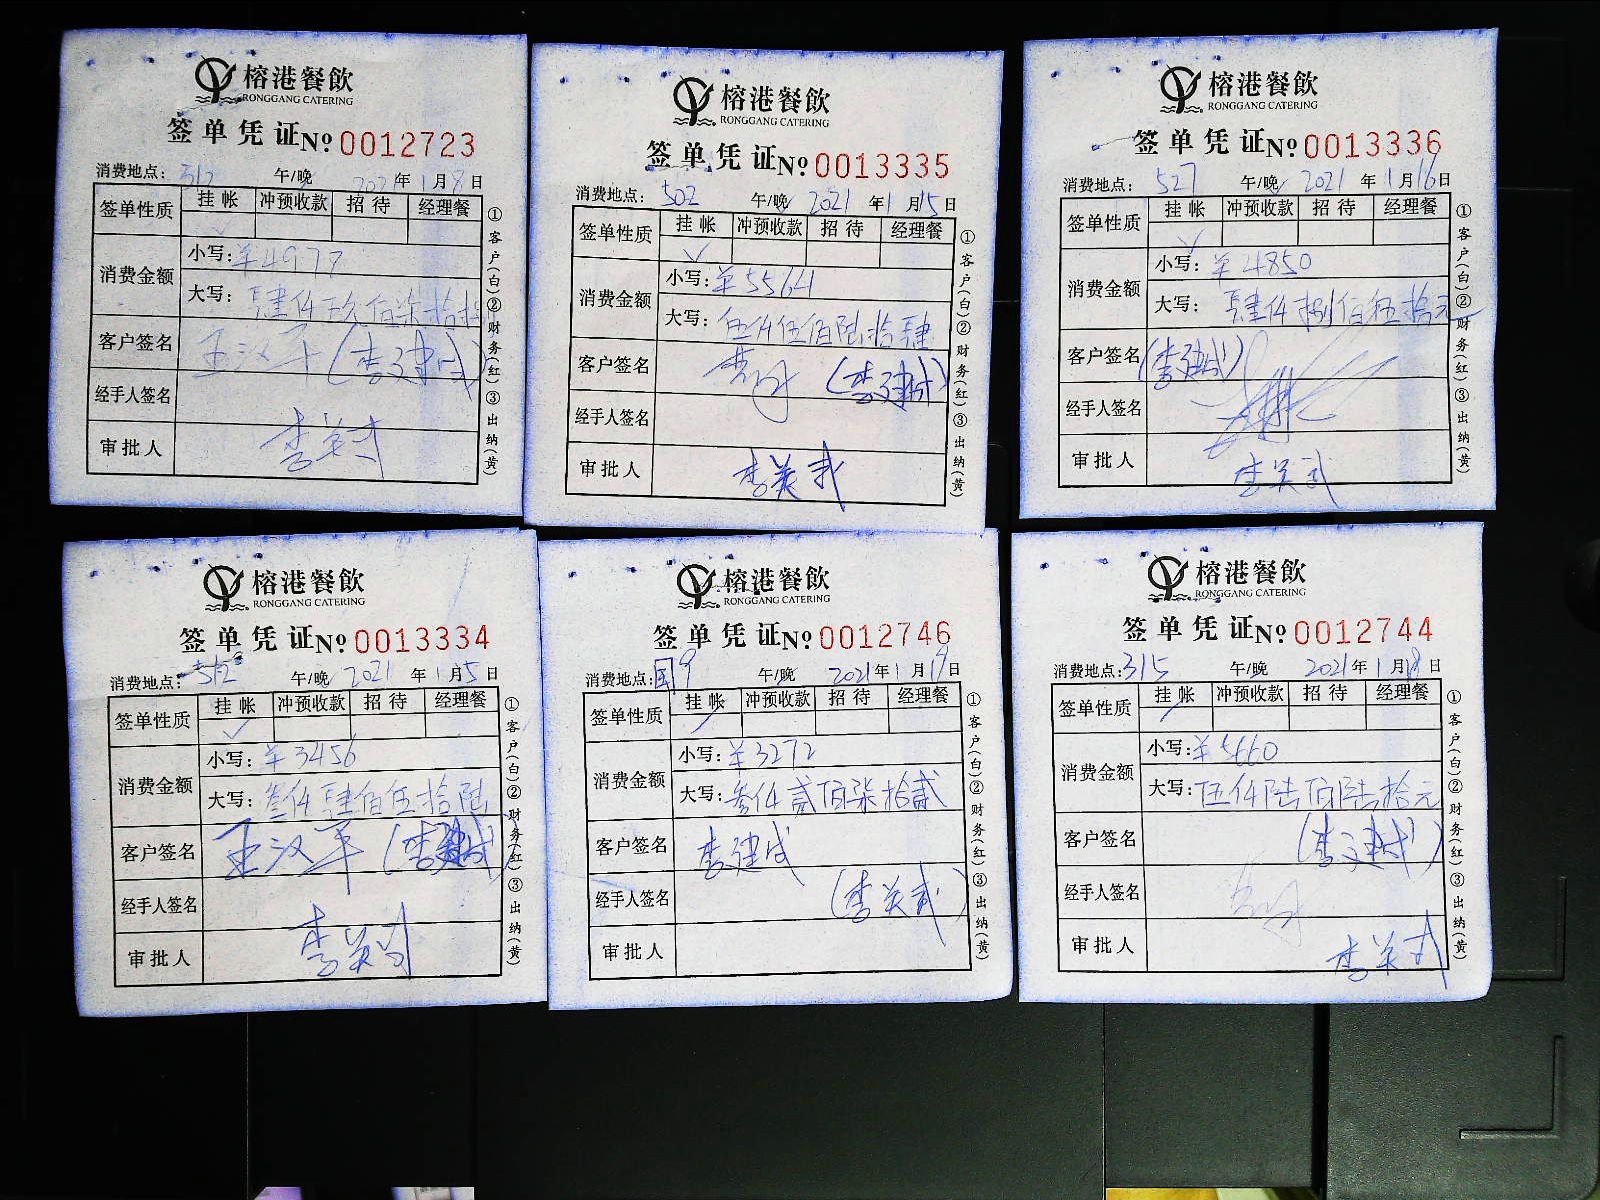 榕港餐飲
RONGGANG CATERING
签单凭证No 0012723
消费地点: 312 午/晚 2021年1月8日
签单性质 挂帐 冲预收款 招待 经理餐
消费金额 小写: ¥4977
大写: 肆仟玖佰柒拾柒
客户签名 王汉平(李建成)
经手人签名
审批人 李美武
①客户(白)②财务(红)③出纳(黄)
榕港餐飲
RONGGANG CATERING
签单凭证No 0013335
消费地点: 502 午/晚 2021年1月15日
签单性质 挂帐 冲预收款 招待 经理餐
消费金额 小写: ¥5564
大写: 伍仟伍佰陆拾肆
客户签名 (李建成)
经手人签名
审批人 李美武
①客户(白)②财务(红)③出纳(黄)
榕港餐飲
RONGGANG CATERING
签单凭证No 0013336
消费地点: 527 午/晚 2021年1月16日
签单性质 挂帐 冲预收款 招待 经理餐
消费金额 小写: ¥4850
大写: 肆仟捌佰伍拾元
客户签名 (李建成)
经手人签名
审批人 李美武
①客户(白)②财务(红)③出纳(黄)
榕港餐飲
RONGGANG CATERING
签单凭证No 0013334
消费地点: 512 午/晚 2021年1月5日
签单性质 挂帐 冲预收款 招待 经理餐
消费金额 小写: ¥3456
大写: 叁仟肆佰伍拾陆
客户签名 王汉平(李建成)
经手人签名
审批人 李美武
①客户(白)②财务(红)③出纳(黄)
榕港餐飲
RONGGANG CATERING
签单凭证No 0012746
消费地点: 国9 午/晚 2021年1月19日
签单性质 挂帐 冲预收款 招待 经理餐
消费金额 小写: ¥3272
大写: 叁仟贰佰柒拾贰
客户签名 李建成
经手人签名 (李美武)
审批人
①客户(白)②财务(红)③出纳(黄)
榕港餐飲
RONGGANG CATERING
签单凭证No 0012744
消费地点: 315 午/晚 2021年1月18日
签单性质 挂帐 冲预收款 招待 经理餐
消费金额 小写: ¥5660
大写: 伍仟陆佰陆拾元
客户签名 (李建成)
经手人签名
审批人 李美武
①客户(白)②财务(红)③出纳(黄)